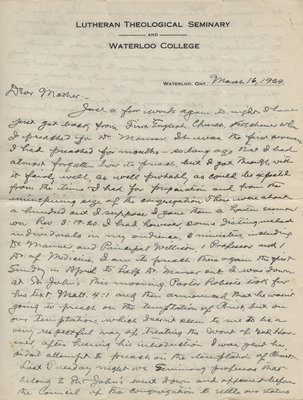 LUTHERAN THEOLOGICAL SEMINARY
AND
WATERLOO COLLEGE
WATERLOO, ONT. March 16, 1924.
Dear Mother:-
Just a few words again to-night. I have
just got back from First English Church Kitchener where
I preached for Dr. Maurer. It was the first sermon
I had preached for months - so long ago that I had
almost forgotten how to preach but I got through with
it fairly well, as well probably as could be expected
from the time I had for preparation and from the
size of the congregation. There were about
a hundred and I suppose I gave them a Lenten sermon
on Rev. 3:19-20. I had however some distinguished
individuals in my audience, 2 ministers including
Dr. Maurer and Principal Willison, 1 Professor and 1
Dr. of Medicine. I am to preach there again the first
Sunday in April to help Dr. Maurer out. I was down
at St. John's this morning. Pastor took for
his text, Matt. 4:1 and then announced that he wasn't
going to preach on the temptation of Christ but on
our temptations which doesn't seem to me to be a
very respectful way of treating the Word of God. How-
ever after hearing his introduction I was glad he
didn't attempt to preach on the temptation of Christ.
Last Tuesday night we Seminary professors that
belong to St. John's went down and appeared before
the Council of the congregation to settle our status